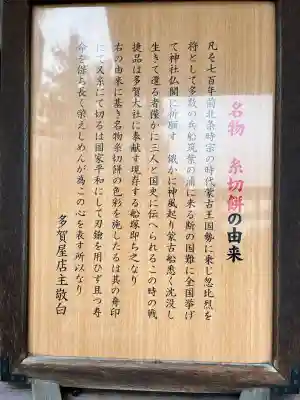 名物 糸切餅の由来
凡そ七百年前北条時宗の時代蒙古王国勢に乗じ忽比烈を
将として多数の兵船筑紫の浦に来る斯の国難に全国挙げ
て神社仏閣に祈願す 俄かに神風起り蒙古船悉く沈没し
生きて還る者僅かに三人と国史に伝へられるこの時の戦
捷品は多賀大社に奉献す現存する船塚即ち之なり
右の由来に基き名物糸切餅の色彩を施したるは其の舟印
にて又糸にて切るは国家平和にして刃鎗を用ひず且つ寿
命を保ち長く栄えしめんが為この心を表す所以なり
多賀屋店主敬白